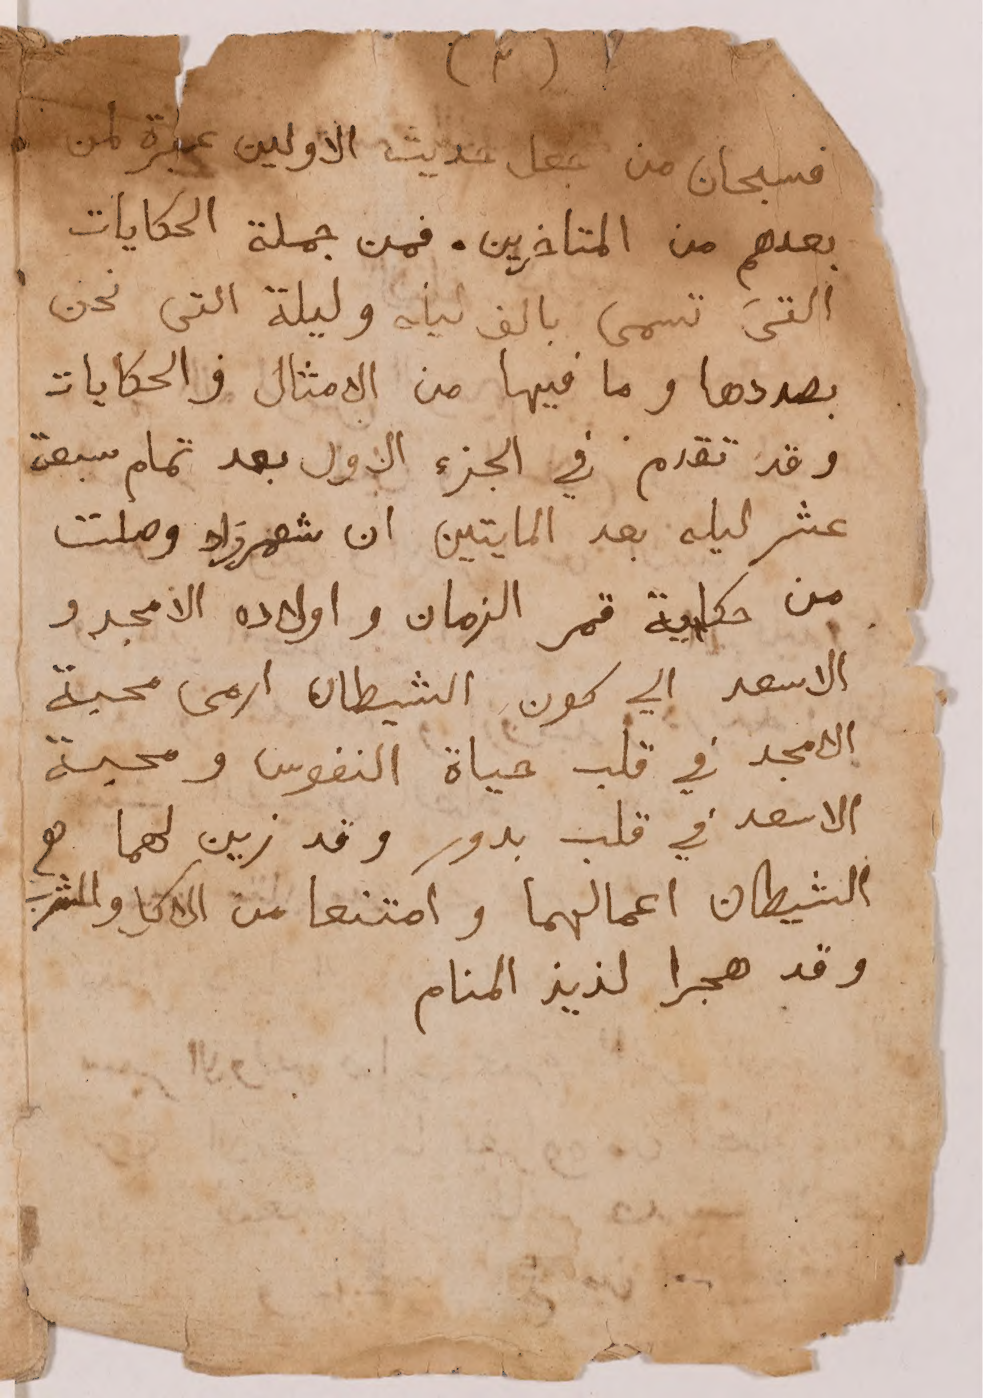 (٣)
فسبحان من جعل حديث الاولين عبرة لمن
بعدهم من المتاخرين . فمن جملة الحكايات
التى تسمى بالف ليله وليلة التى نحن
بصددها وما فيها من الامثال والحكايات
وقد تقدم في الجزء الاول بعد تمام سبعة
عشر ليله بعد المايتين ان شهرزاد وصلت
من حكاية قمر الزمان واولاده الامجد و
الاسعد الي كون الشيطان ارمى محبة
الامجد في قلب حياة النفوس ومحبة
الاسعد في قلب بدور وقد زين لهما
الشيطان اعمالهما وامتنعا من الاكل والشرب
وقد هجرا لذيذ المنام